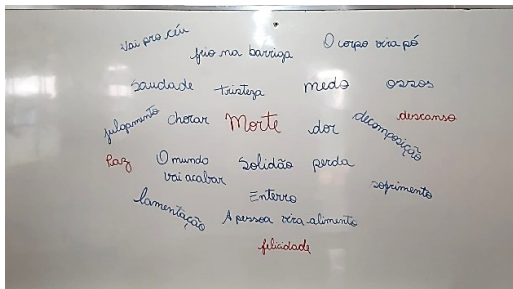 Vai pro céu
frio na barriga
O corpo vira pó
saudade
tristeza
medo
ossos
julgamento
chorar
Morte
dor
decomposição
descanso
Paz
O mundo
vai acabar
Solidão
perda
sofrimento
lamentação
Enterro
A pessoa vira alimento
felicidade